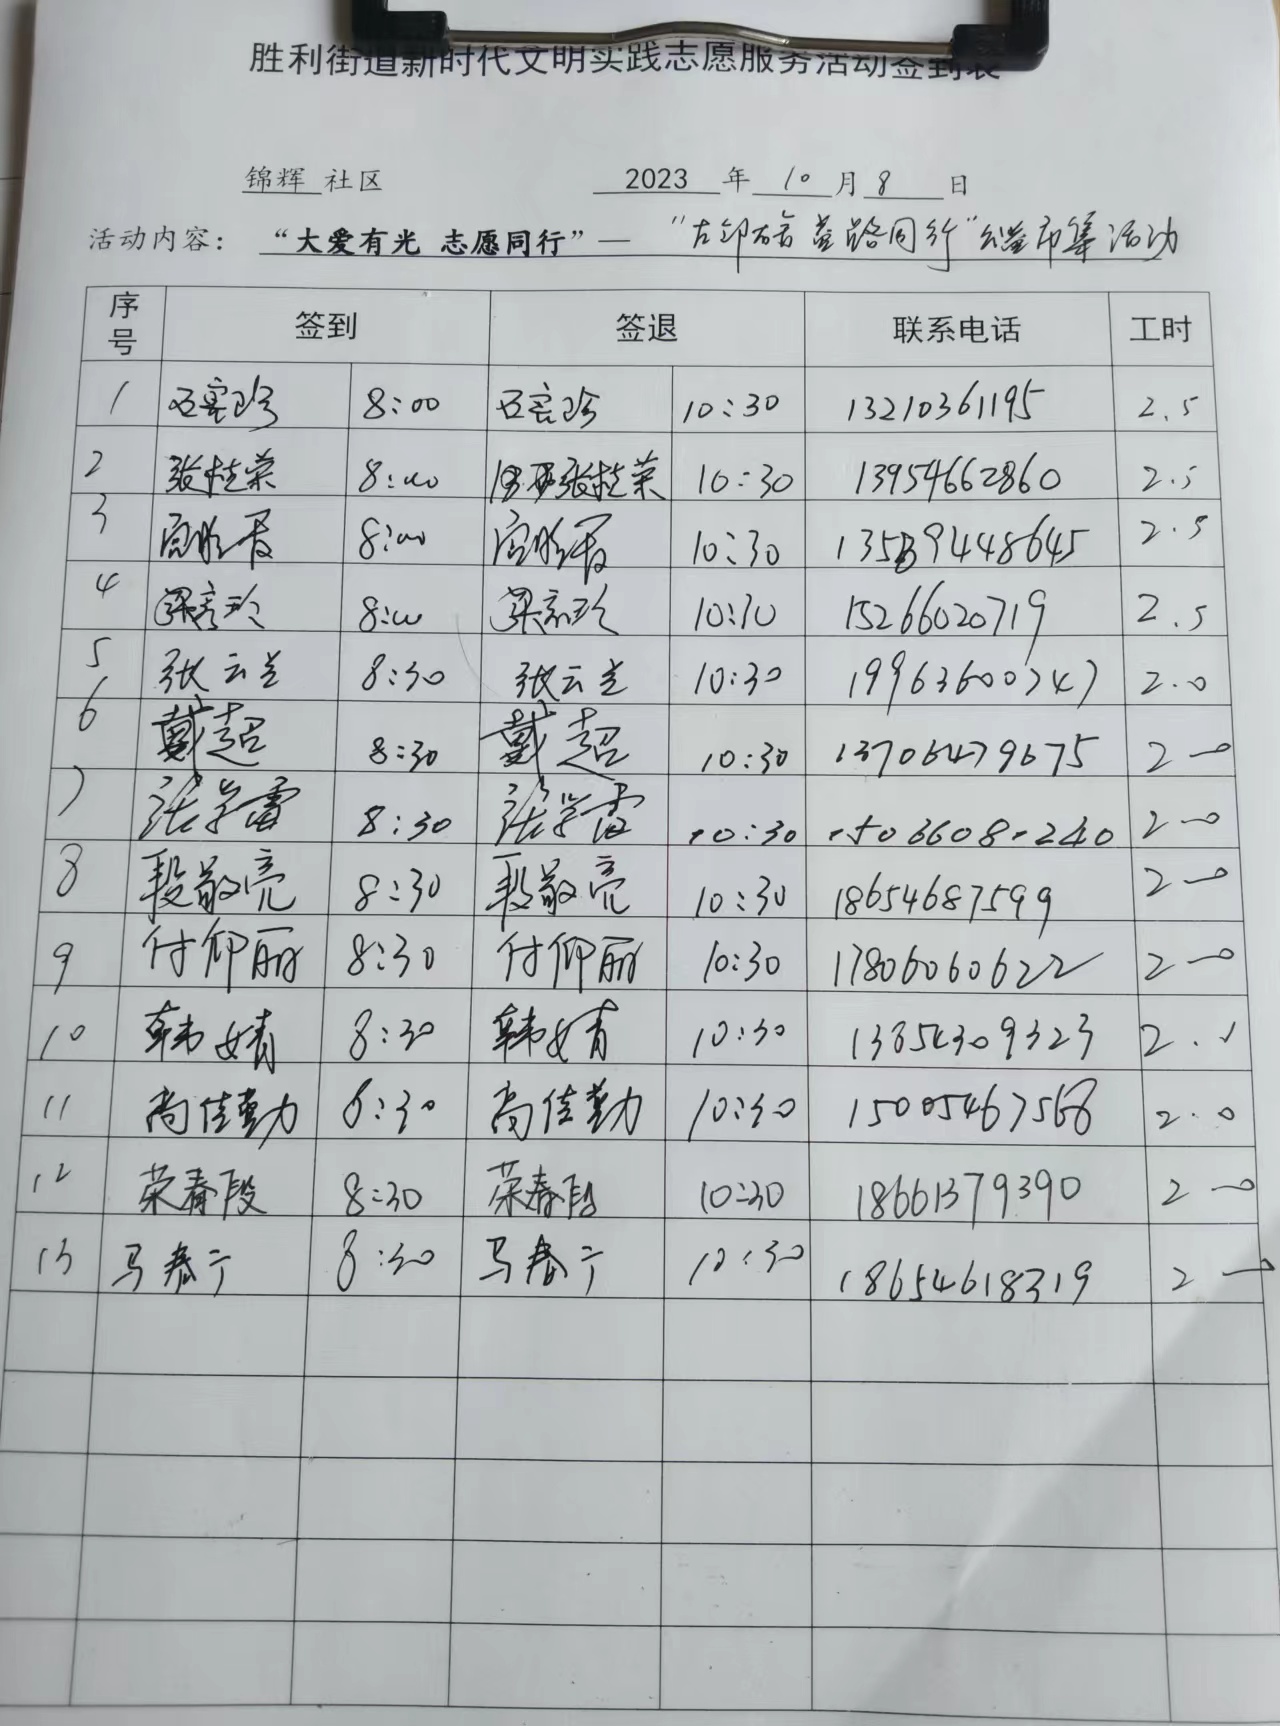 胜利街道新时代文明实践志愿服务活动签到表
锦辉 社区 2023 年 10 月 8 日
活动内容： “大爱有光 志愿同行”— “左邻右舍 益路同行”公益市集活动
序号 签到 签退 联系电话 工时
1 8:00 10:30 13210361195 2.5
2 张桂荣 8:00 张桂荣 10:30 13954662860 2.5
3 8:00 10:30 2.5
4 梁彦玲 8:00 梁彦玲 10:30 15266020719 2.5
5 张云兰 8:30 张云兰 10:30 2.0
6 戴超 8:30 戴超 10:30 13706479675 2.0
7 张学雷 8:30 张学雷 10:30 15066081240 2.0
8 段敬亮 8:30 段敬亮 10:30 18654687599 2.0
9 付仰丽 8:30 付仰丽 10:30 17806060622 2.0
10 韩婧 8:30 韩婧 10:30 13854309323
11 尚佳勤 8:30 尚佳勤 10:30 15005467568 2.0
12 荣春段 8:30 荣春段 10:30 18661379390 2.0
13 马春宁 8:30 马春宁 10:30 18654618319 2.0